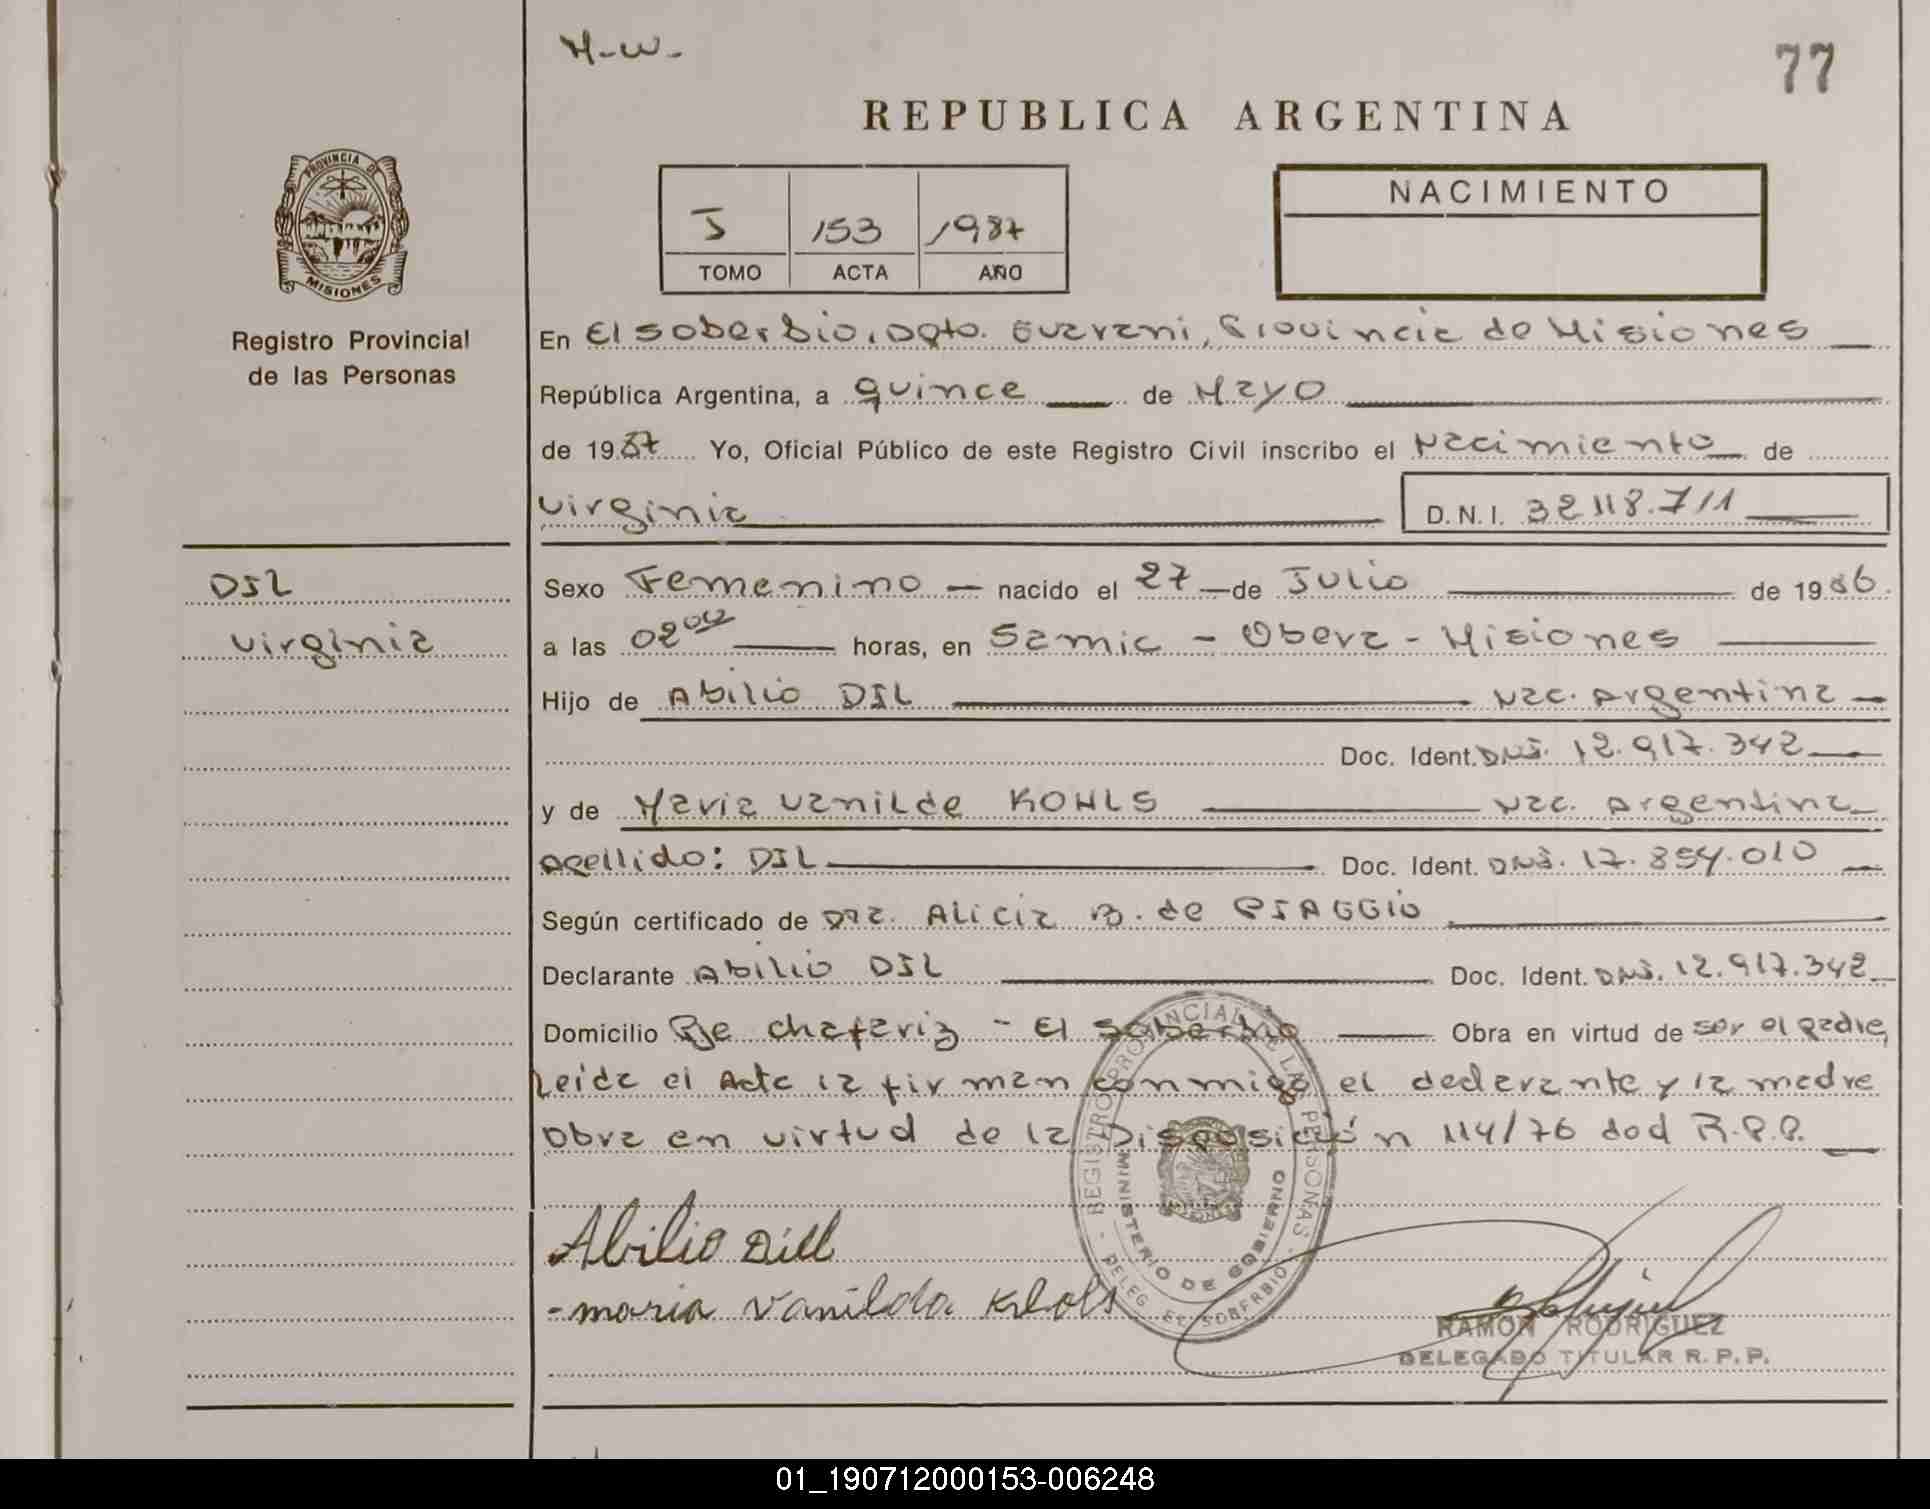 H-W-
77
REPUBLICA ARGENTINA
PROVINCIA DE
MISIONES
Registro Provincial
de las Personas
I 153 1987
TOMO ACTA AÑO
NACIMIENTO
En El Soberbio, Dpto. Guarani, Provincia de Misiones
República Argentina, a quince de Mayo
de 1987 Yo, Oficial Público de este Registro Civil inscribo el Nacimiento de
Virginia D.N.I. 32118.711
DIL
Virginia
Sexo Femenino nacido el 27 de Julio de 1986
a las 02 00 horas, en Samic - Obera - Misiones
Hijo de Abilio DIL Nac. Argentina
Doc. Ident. DNI. 12.917.342
y de Maria Vanilde KOHLS Nac. Argentina
Apellido: DIL Doc. Ident. DNI. 17.854.010
Según certificado de Dra. Alicia B. de PIAGGIO
Declarante Abilio DIL Doc. Ident. DNI. 12.917.342
Domicilio Pje Chafariz - El Soberbio Obra en virtud de ser el padre,
Leida el Acta la firman conmigo el declarante y la madre
Obra en virtud de la Disposición 114/76 del R.P.P.
Abilio Dill
- maria Vanilda Khols
REGISTRO PROVINCIAL DE LAS PERSONAS
MINISTERIO DE GOBIERNO
DELEG. EL SOBERBIO
RAMON RODRIGUEZ
DELEGADO TITULAR R.P.P.
01_190712000153-006248